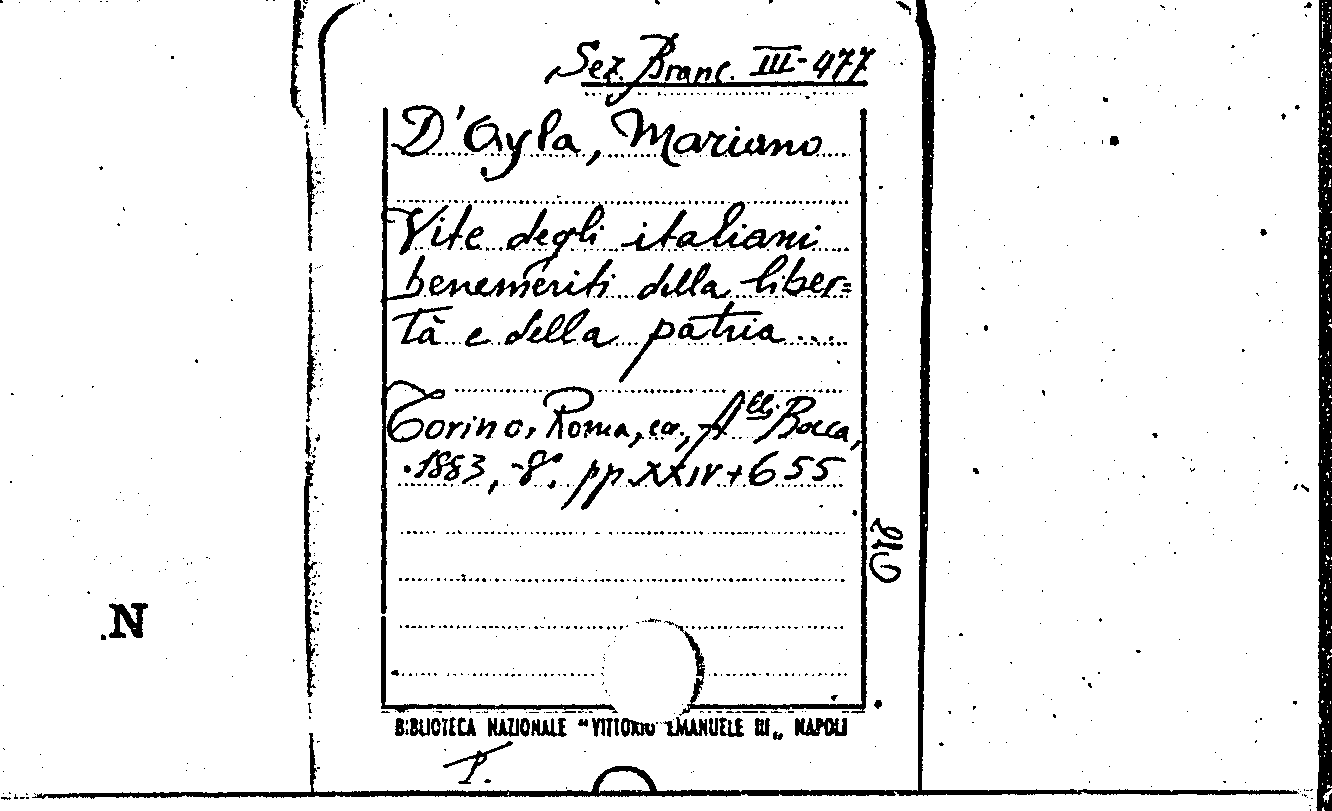 Sez. Branc. III-477
D'Ayla, Mariano
Vite degli italiani
benemeriti della liber=
tà e della patria...
Torino, Roma, ec., F.lli Bocca,
1883, -8°. pp. XXIV+655
N
BIBLIOTECA NAZIONALE "VITTORIO EMANUELE III„ NAPOLI
P.